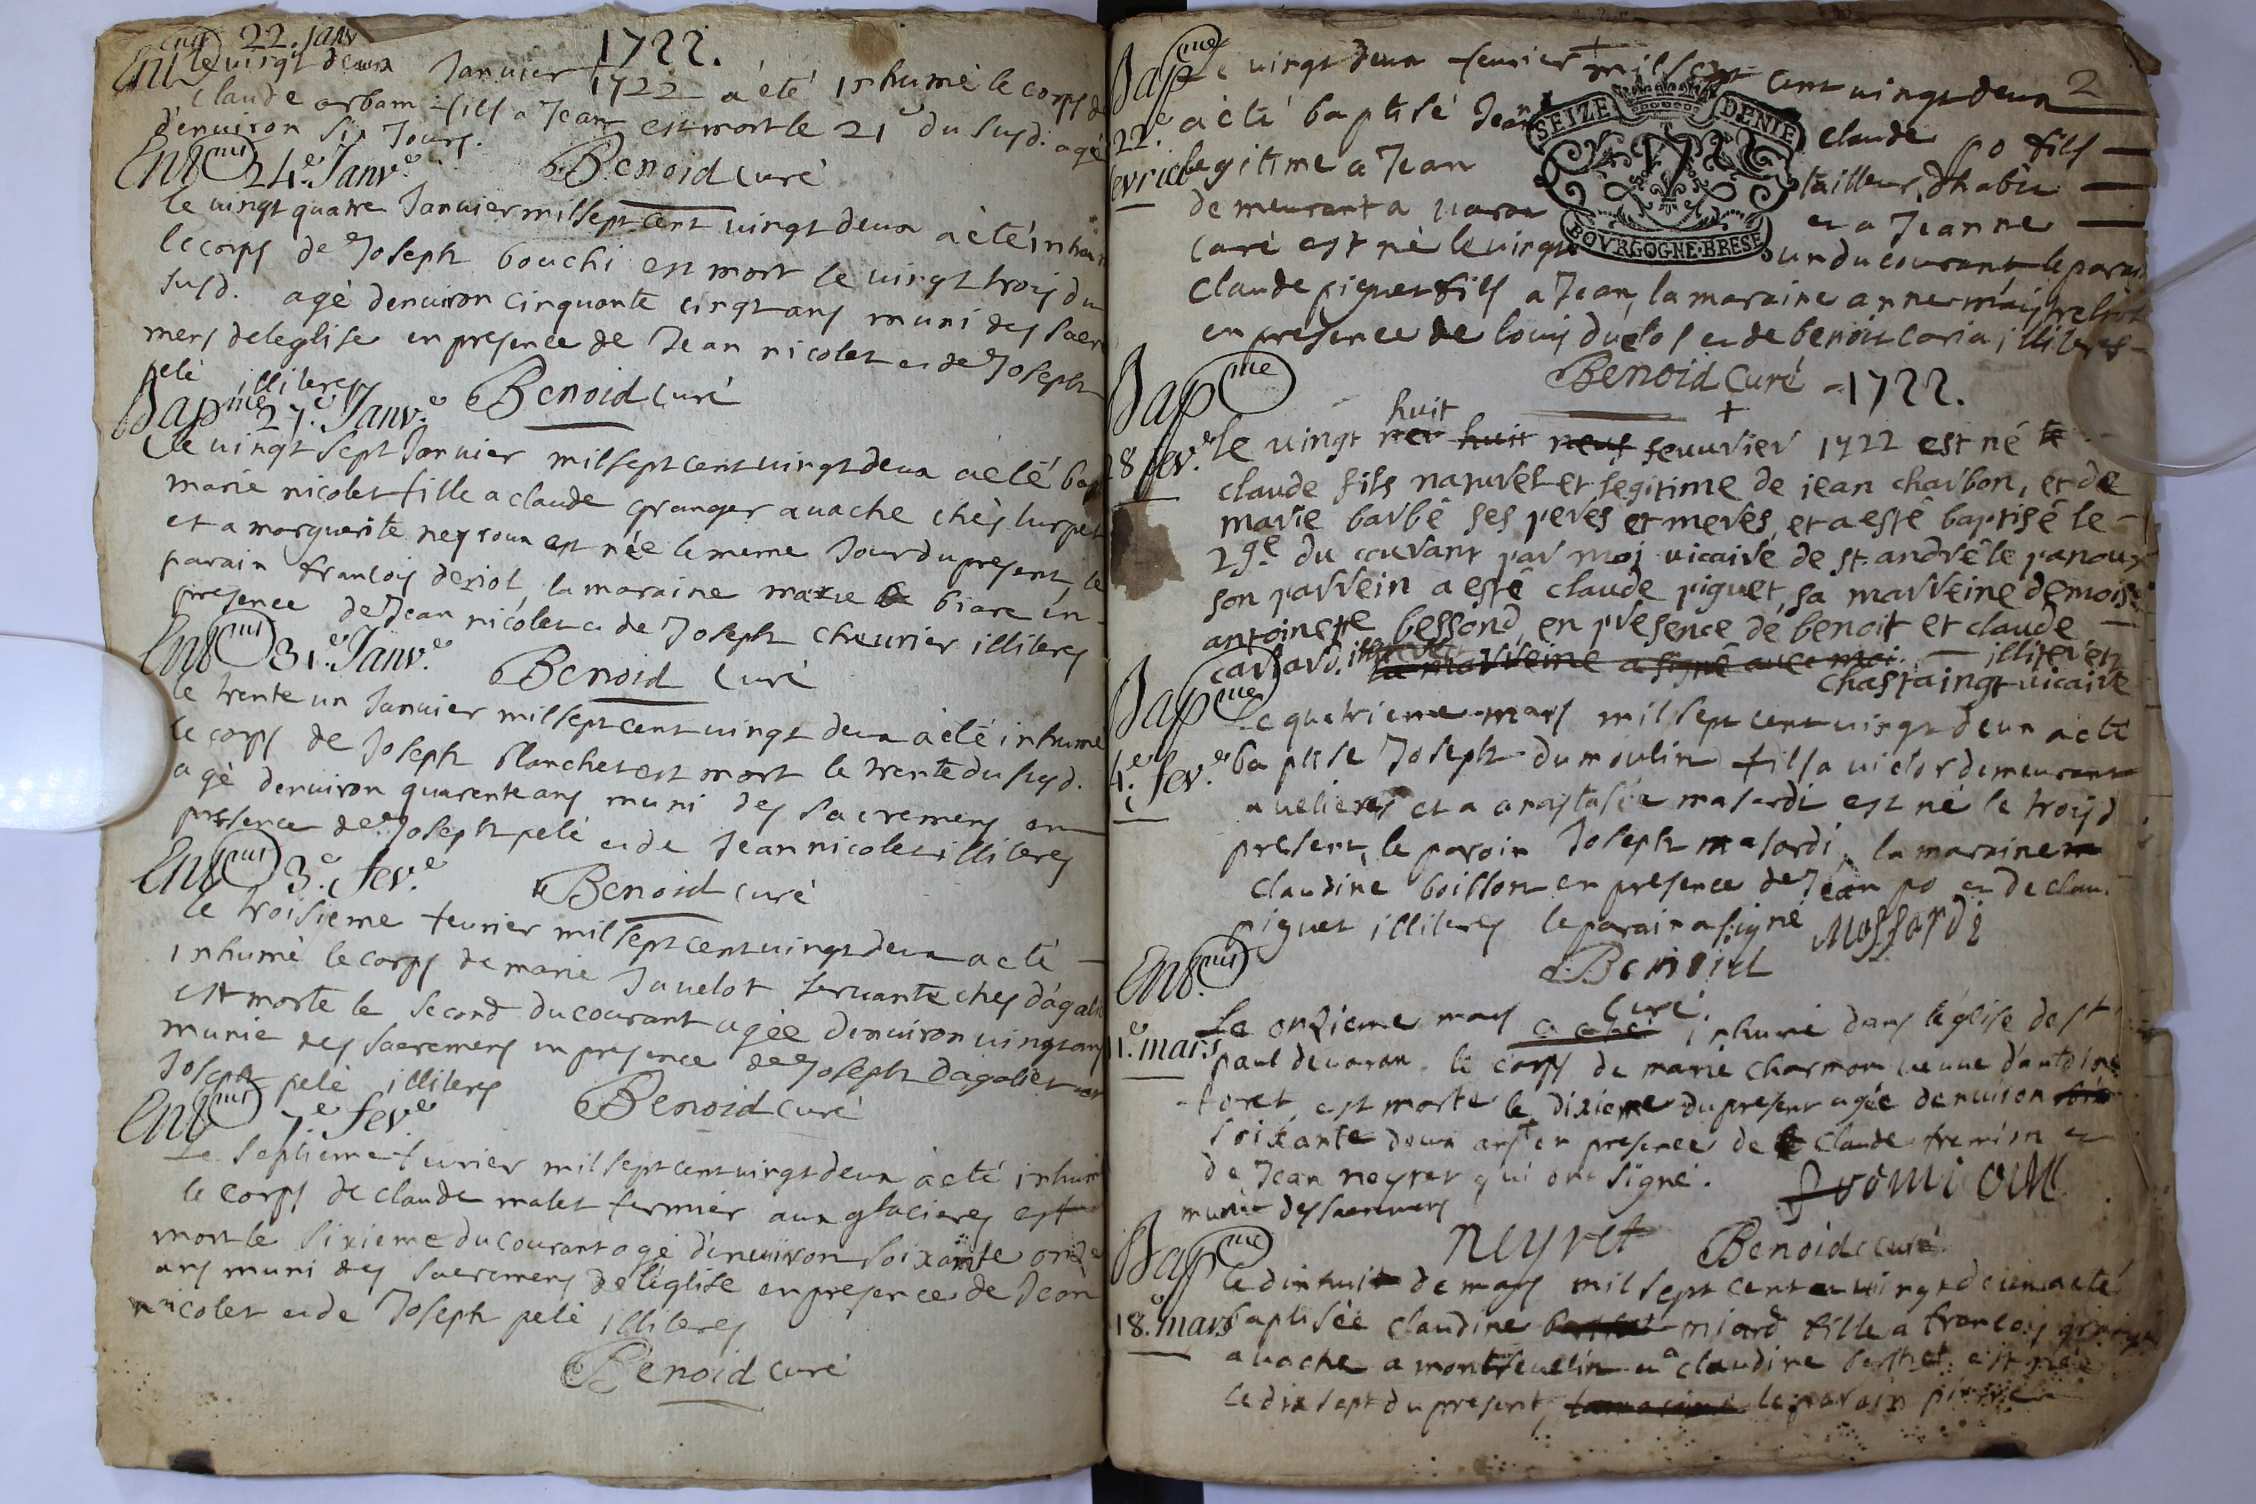 1722.
Ent.ent 22. janv
le vingt deux Janvier 1722 a été inhumé le corps d
claude arbam fils a Jean est mort le 21e du susd. agé
d'environ six Jours.
Benoid curé
Ent.ent 24.e Janv.e
le vingt quatre Janvier mil sept cent vingt deux a été inhum
le corps de Joseph bouchi est mort le vingt trois du
susd. agé denviron cinquante cinqt ans muni des sacre
mens deleglise en presence de Jean nicolet et de Joseph
pelé illiteres
Benoid curé
Bapme 27.e Janv.e
Le vingt sept Janvier mil sept cent vingt deux a été bap
marie nicolet fille a claude granger a vache chés
et a marguerite neyroux est née le meme Jour du present, le
parain francois deriol, la maraine marie biare en
presence de Jean nicolet et de Joseph chevrier illiteres
Benoid curé
Ent.ent 31.e Janv.e
le trente un Janvier mil sept cent vingt deux a été inhumé
le corps de Joseph Blanchet est mort le trente du susd.
agé denviron quarente ans muni des sacremens en
presence de Joseph pelé et de Jean nicolet illiteres
Benoid curé
Ent.ent 3.e fev.e
le troisieme fevrier mil sept cent vingt deux a été
inhumé le corps de marie Javelot servante ches dagalie
est morte le second du courant agée denviron vingt ans
munie des sacremens en presence de Joseph Dagalier et
Joseph pelé illiteres
Benoid curé
Ent.ent 7.e fev.e
Le septieme fevrier mil sept cent vingt deux a été inhum
le corps de claude malet fermier aux glacieres est
mort le sixieme du courant agé denviron soixante onze
ans muni des sacremens de l'église en presence de Jean
nicolet et de Joseph pelé illiteres
Benoid curé
2
Bapme
22.e
evrier
Le vingt deux fevrier mil sept cent vingt deux
a été baptisé Jean claude po fils
legitime a Jean tailleur d'habit
demeurant a varan et a Jeanne
cari est né le vingt un du courant le parai
claude piguet fils a Jean, la maraine anne
en presence de louis duclos et de benoit caria illiteres
SEIZE DENIE
BOVRGOGNE·BRESE
Benoid curé
1722.
Bapme
28 fev.e
le vingt huit huit neuf fevurier 1722 est né
claude fils naturel et legitime de jean charbon, et de
marie barbê ses perés et merés, et a estê baptisé le
29.e du couvant par moi vicaire de st. andrê le panoux
son parrein a estê claude piguet, sa marreine demois
antoinette bessond, en presence de benoit et claude
carlard. la marreine a signê avec moi — illiterés
chastaingt vicaire
Bapme
4.e fev.e
Le quatrieme mars mil sept cent vingt deux a été
baptisé Joseph dumoulin fils a victor demeurant
a velieres et a anastasie masardi est né le trois d
present, le parain Joseph masardi, la maraine
claudine boisson en presence de Jean po et de clau.
piguet illiteres le parain a signé
Massardi
Benoid
curé.
Ent.ent
1.e mars
Le onzieme mars a été inhumé dans l'église de st
paul devaran le corps de marie charmon veuve d'antoine
foret, est morte le dixieme du present agée denviron
soixante deux ans en presence de claude fremion et
de Jean neyret qui ont signé.
munie des sacremens
fromion
neyret
Benoid curé
Bapme
18.e mars
Le dix huit de mars mil sept cent et vingt deux a été
baptisée claudine miard fille a francois
a vache a montrevelin et a claudine berthet est née
le dix sept du present, le parain pierre